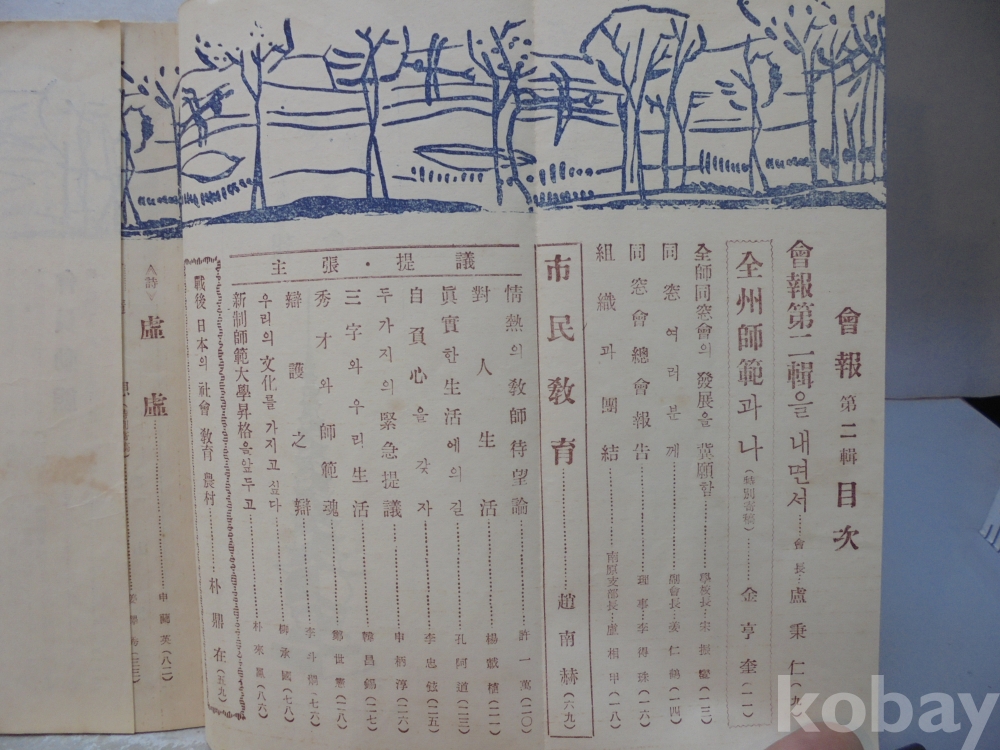 會報 第二輯 目次
會報第二輯을 내면서……會長·盧秉仁(九)
全州師範과 나(特別寄稿)………金亨奎(一一)
全師同窓會의 發展을 冀願함………學校長·宋 (一三)
同窓여러분께………副會長·姜仁鶴(一四)
同窓會總會報告………理事·李得珠(一六)
組織과 團結………南原支部長·盧相甲(一八)
市民敎育………趙南赫(六九)
主張·提議
情熱의 敎師待望論………許一萬(二〇)
對人生活………楊 植(二一)
眞實한 生活에의 길………孔阿道(二三)
自負心을 갖자………李忠 (二五)
두가지의 緊急提議………申柄淳(二六)
三字와 우리生活………韓昌錫(二七)
秀才와 師範魂………鄭世 (二八)
辯護之辯………李斗 (七六)
우리의 文化를 가지고 싶다………柳承國(七八)
新制師範大學昇格을앞두고………朴來鳳(八六)
戰後 日本의 社會 敎育 農村………朴鼎在(五九)
<詩> 虛虛………申蘭英(八二)
kobay